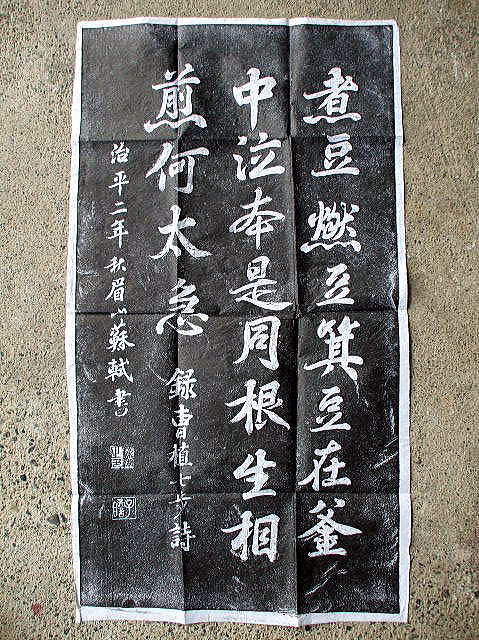 煮豆燃豆箕豆在釜
中泣本是同根生相
煎何太急 錄曹植七步詩
治平二年秋眉山蘇軾書